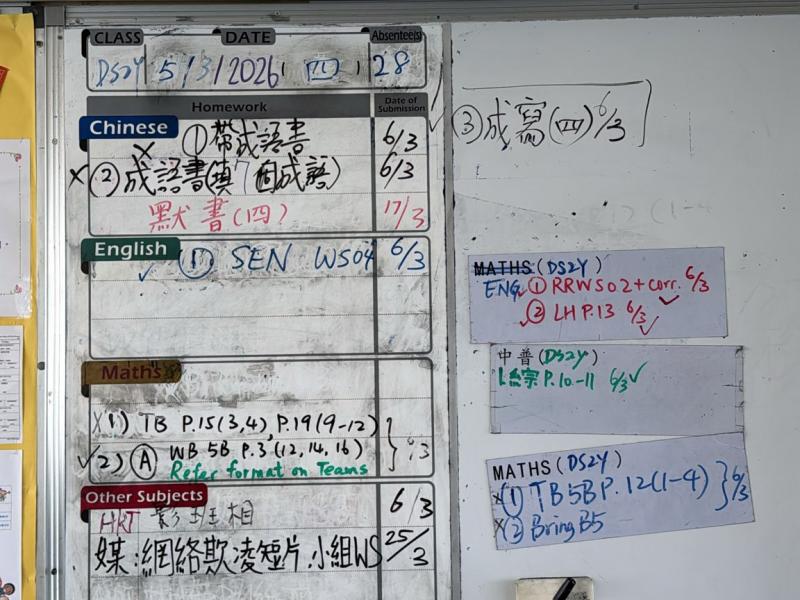 CLASS DATE Absentee(s)
DS2Y 5/3/2026 四 28
Homework Date of Submission
Chinese
① 帶成語書 6/3
② 成語書(填7個成語) 6/3
默書(四) 17/3
English
① SEN WS04 6/3
Maths
1) TB P.15(3,4), P.19(9-12)
2) Ⓐ WB 5B P.3(12, 14, 16)
Refer format on Teams
Other Subjects
HRT 影班相 6/3
媒:網絡欺凌短片.小組WS 25/3
③ 成寫(四) 6/3
MATHS (DS2Y)
ENG ① RRWS02+corr. 6/3
② LH P.13 6/3
中普 (DS2Y)
P.10-11 6/3
MATHS (DS2Y)
(1) TB5B P.12(1-4) 6/3
(2) Bring B5